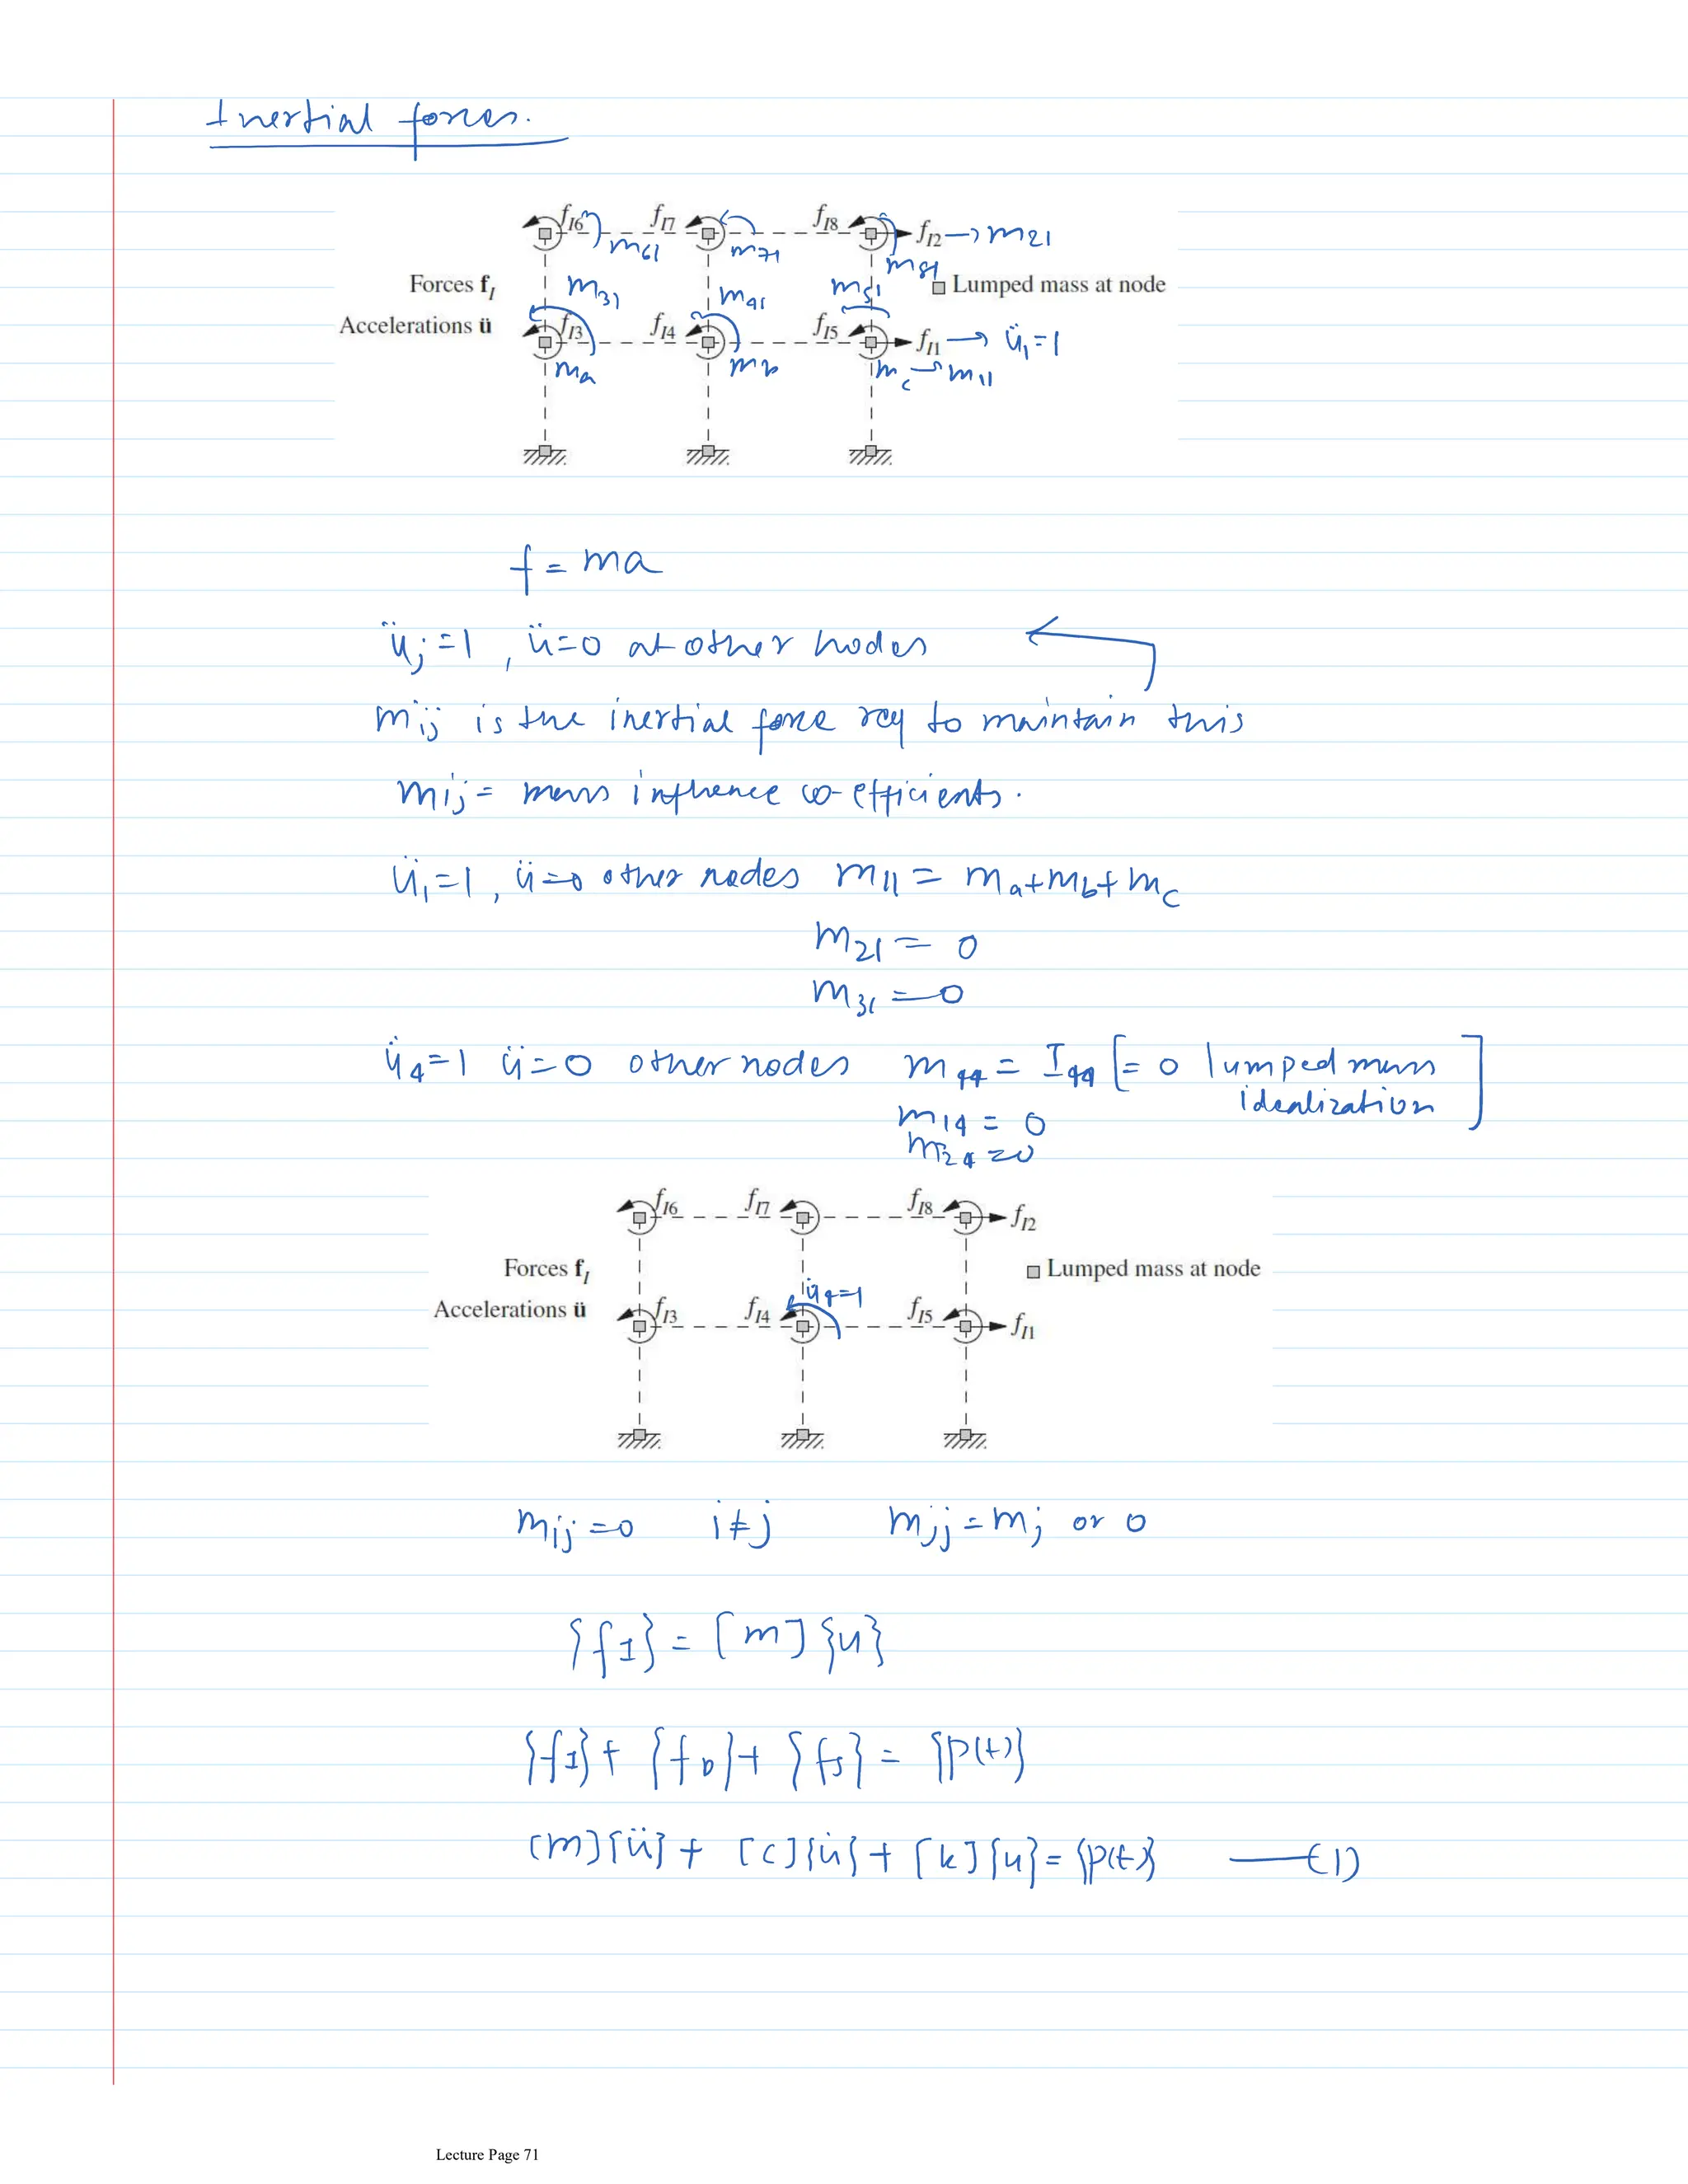 Inertial forces.
f_I6 m61 f_I7 m71 f_I8 m81 f_I2 → m21
Forces f_I m31 m41 m51 □ Lumped mass at node
Accelerations ü f_I3 f_I4 f_I5 f_I1 → ü₁=1
ma mb mc → m11
f = ma
üj=1, ü=0 at other nodes
mij is the inertial force req to maintain this
mij = mass influence co-efficients.
ü₁=1, ü=0 other nodes m11 = ma+mb+mc
m21 = 0
m31 = 0
ü4=1 ü=0 other nodes m44 = I44 [= 0 lumped mass
idealization]
m14 = 0
m24 = 0
f_I6 f_I7 f_I8 f_I2
Forces f_I □ Lumped mass at node
ü4=1
Accelerations ü f_I3 f_I4 f_I5 f_I1
mij=0 i≠j mjj=mj or 0
{fI} = [m]{u}
{fI}+{fD}+{fS} = {p(t)}
[m]{ü}+[c]{u̇}+[k]{u}={p(t)} —(1)
Lecture Page 71